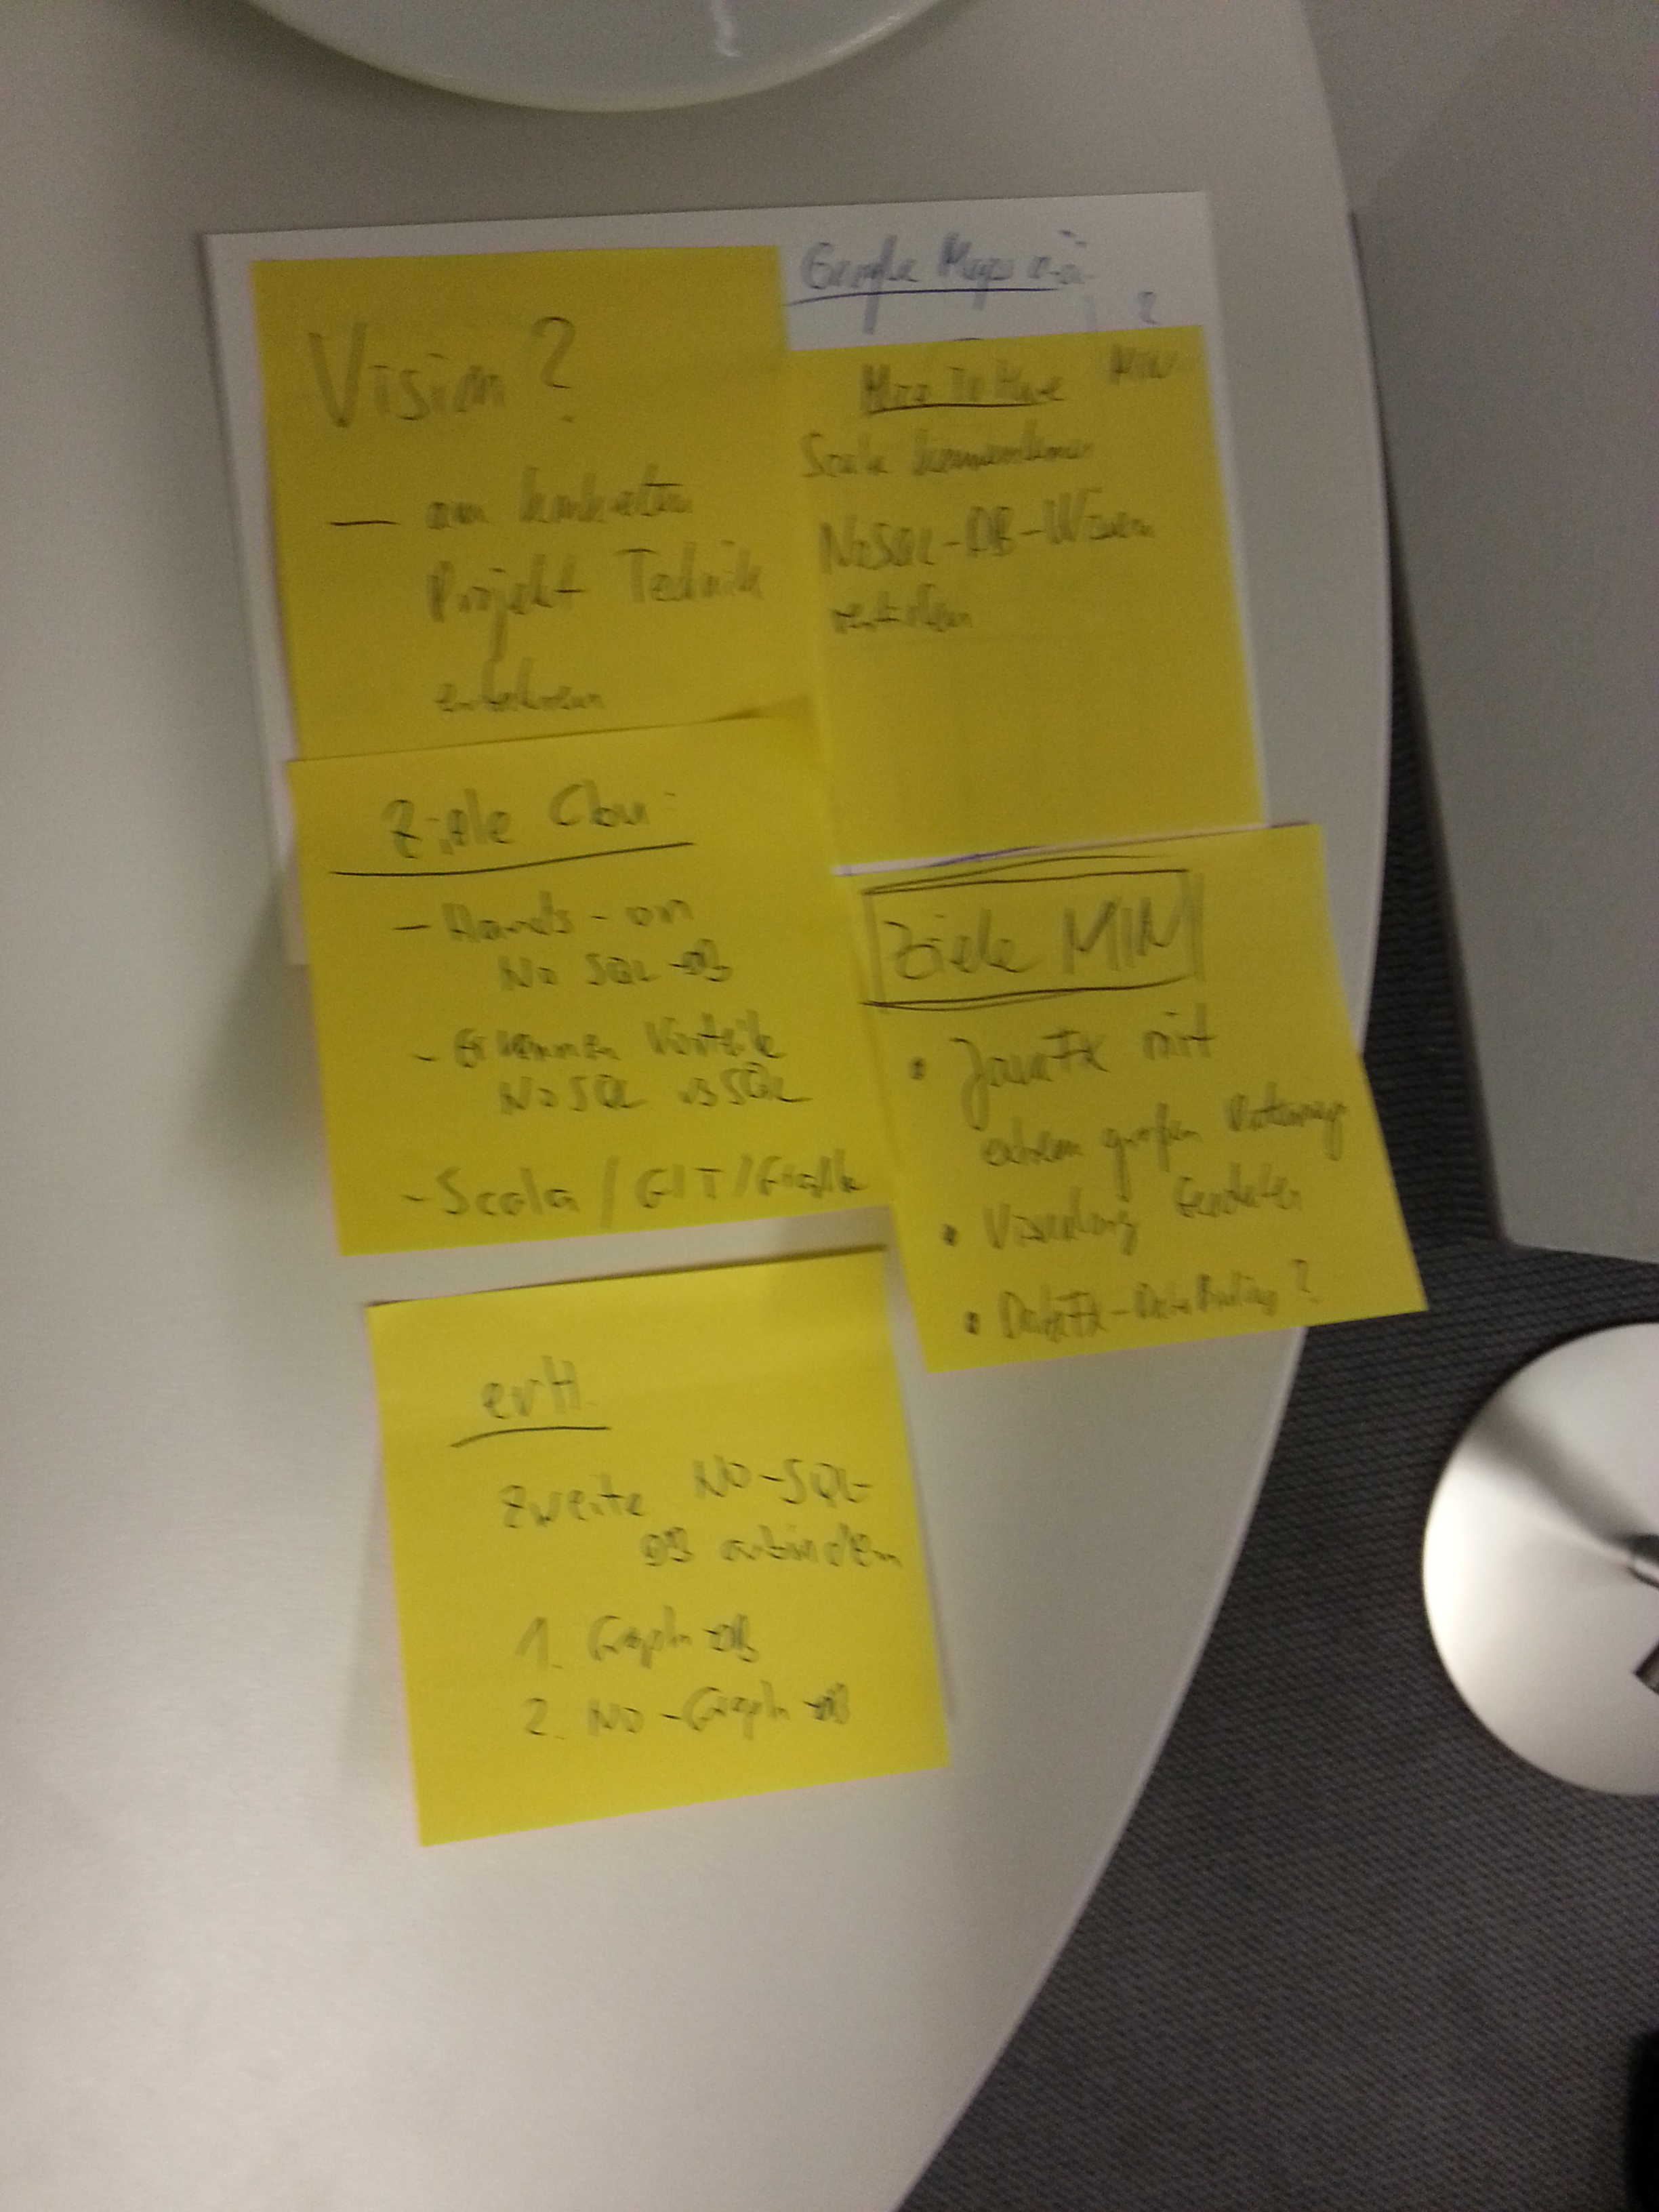 Google Maps o.ä.
?
Vision?
— am konkreten
Projekt Technik
erfahren
MIN
Scala kennenlernen
NoSQL-DB-Wissen
vertiefen
Ziele
- Hands-on
No SQL-DB
- Erkennen Vorteile
No SQL vs SQL
- Scala / GIT / Grafik
Ziele MIN
• JavaFX mit
extrem großen
•
• DataFX-DataBinding?
evtl.
Zweite NO-SQL-
DB anbinden
1. Graph-DB
2. No-Graph-DB